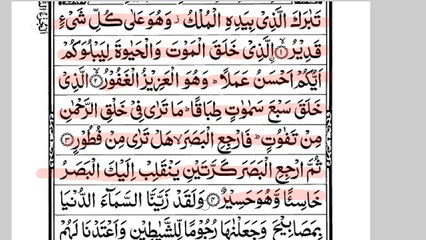 تَبٰرَكَ الَّذِیْ بِیَدِهِ الْمُلْكُ ز وَهُوَ عَلٰی كُلِّ شَیْءٍ
قَدِیْرُ ۙ﴿۱﴾ الَّذِیْ خَلَقَ الْمَوْتَ وَالْحَیٰوةَ لِیَبْلُوَكُمْ
اَیُّكُمْ اَحْسَنُ عَمَلًا ؕ وَهُوَ الْعَزِیْزُ الْغَفُوْرُ ۙ﴿۲﴾ الَّذِیْ
خَلَقَ سَبْعَ سَمٰوٰتٍ طِبَاقًا ؕ مَا تَرٰی فِیْ خَلْقِ الرَّحْمٰنِ
مِنْ تَفٰوُتٍ ؕ فَارْجِعِ الْبَصَرَ ۙ هَلْ تَرٰی مِنْ فُطُوْرٍ ﴿۳﴾
ثُمَّ ارْجِعِ الْبَصَرَ كَرَّتَیْنِ یَنْقَلِبْ اِلَیْكَ الْبَصَرُ
خَاسِئًا وَّهُوَ حَسِیْرٌ ﴿۴﴾ وَلَقَدْ زَیَّنَّا السَّمَآءَ الدُّنْیَا
بِمَصَابِیْحَ وَجَعَلْنٰهَا رُجُوْمًا لِّلشَّیٰطِیْنِ وَاَعْتَدْنَا لَهُمْ